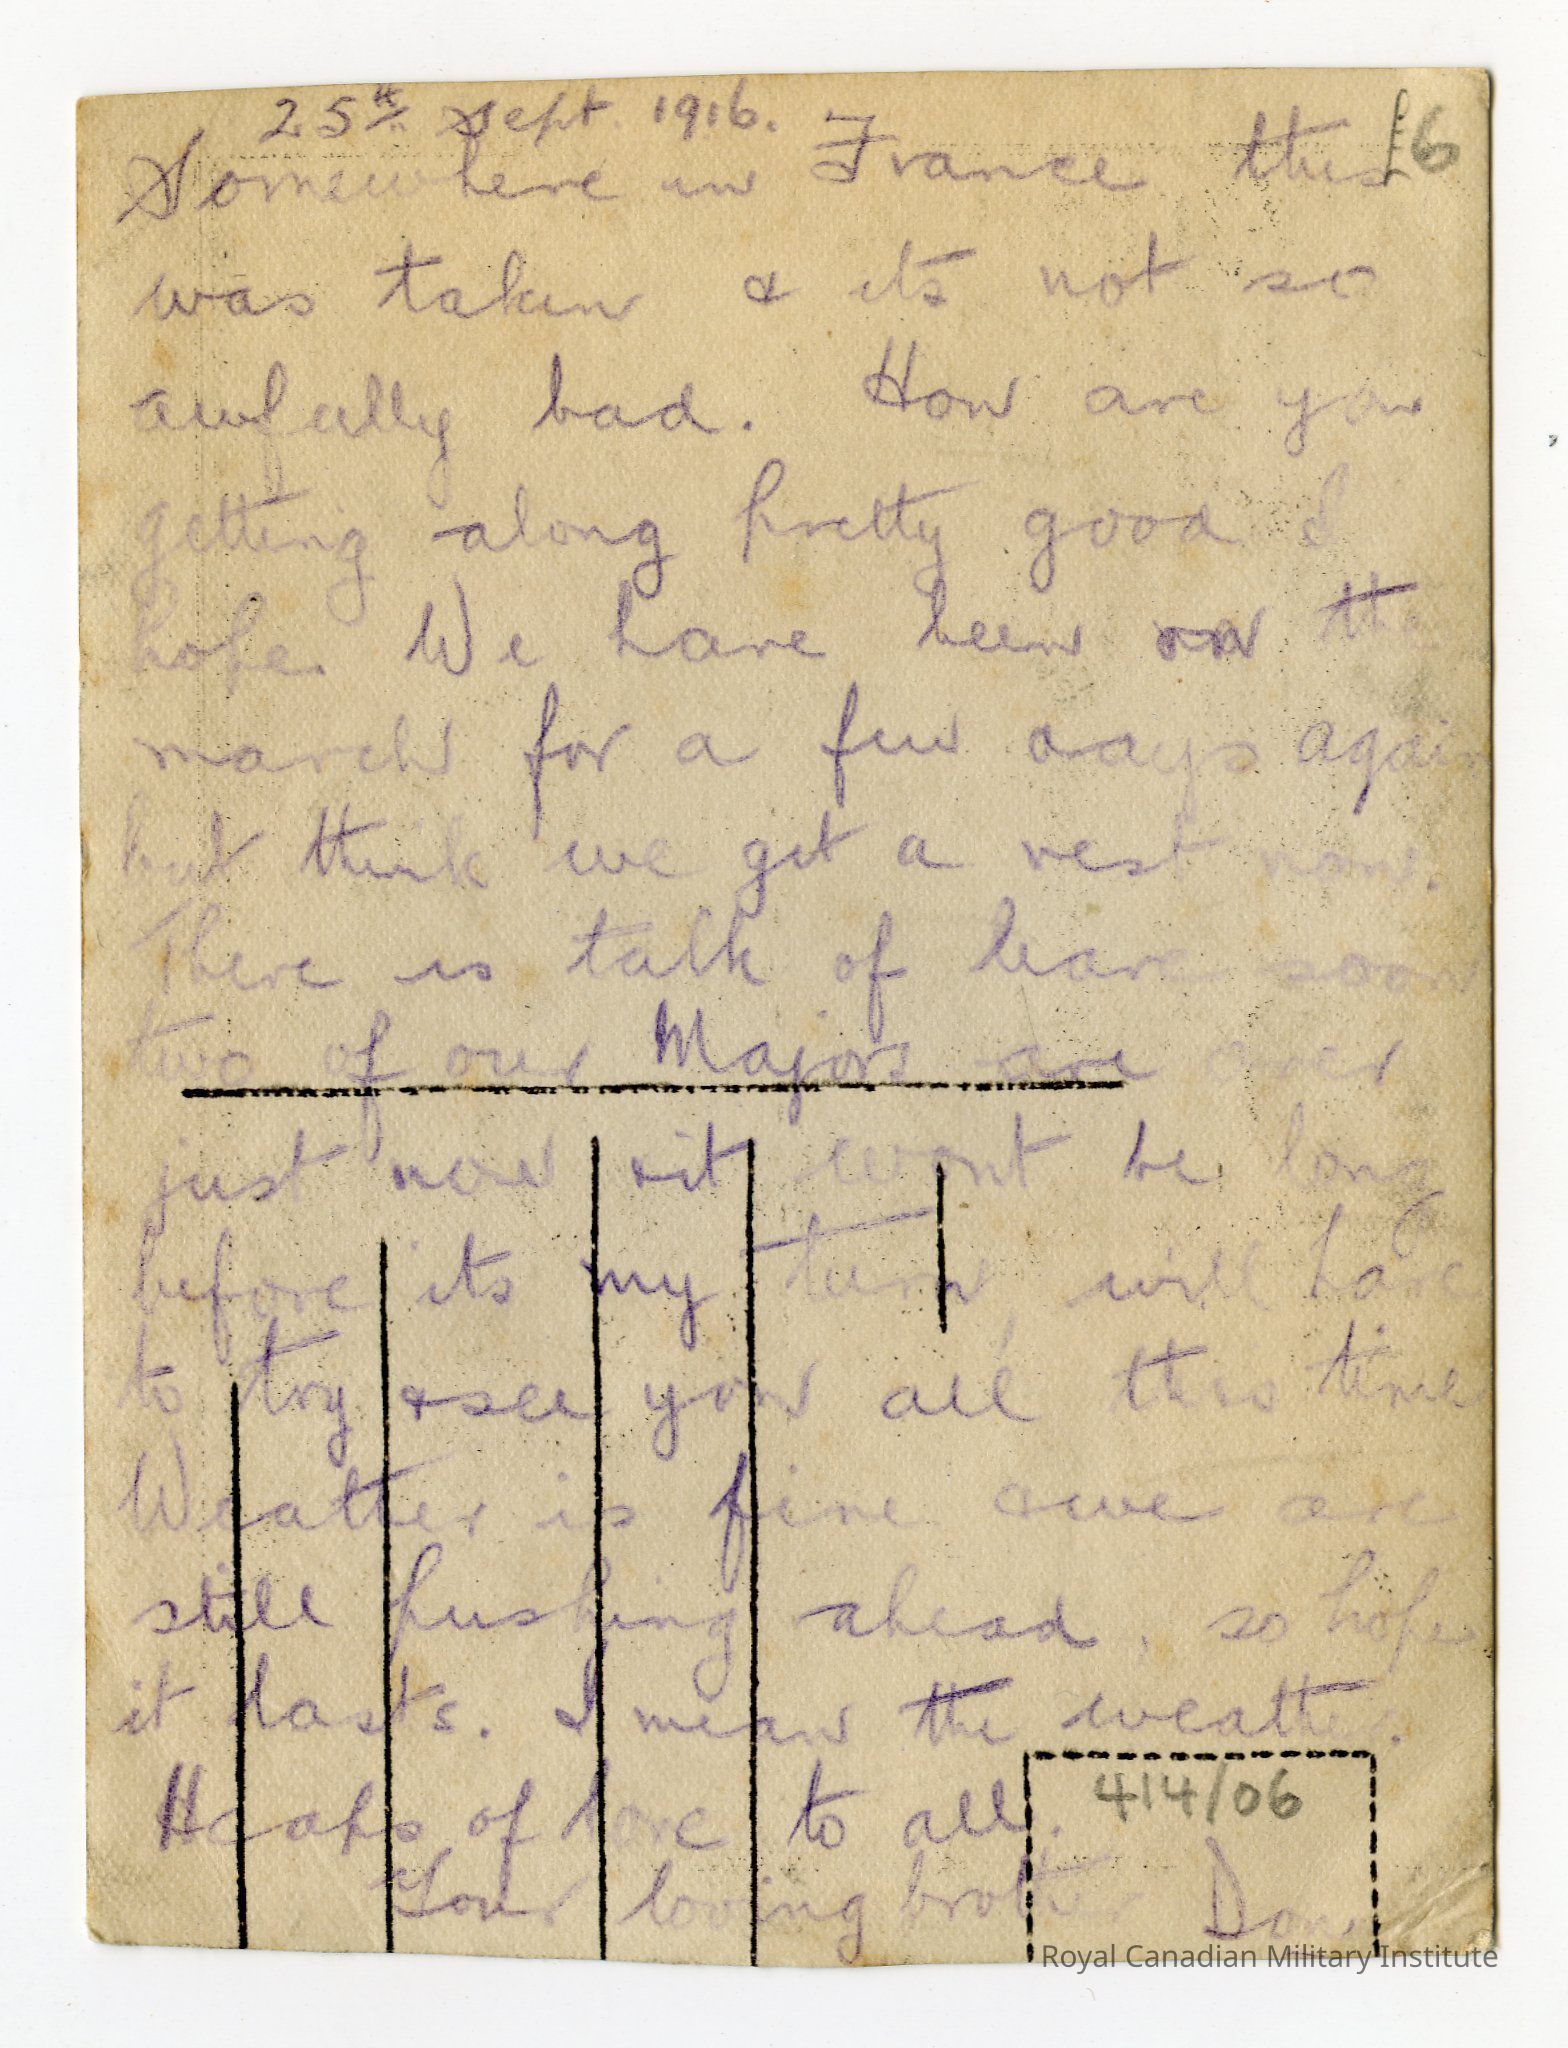 25th Sept. 1916.
£6
Somewhere in France this
was taken & its not so
awfully bad. How are you
getting along pretty good I
hope. We have been on the
march for a few days again
but think we get a rest now.
There is talk of leave soon
two of our Majors are over
just now & it wont be long
before its my turn, will have
to try & see you all this time
Weather is fine & we are
still pushing ahead, so hope
it lasts. I mean the weather.
Heaps of love to all.
414/06
Your loving brother Don.
Royal Canadian Military Institute